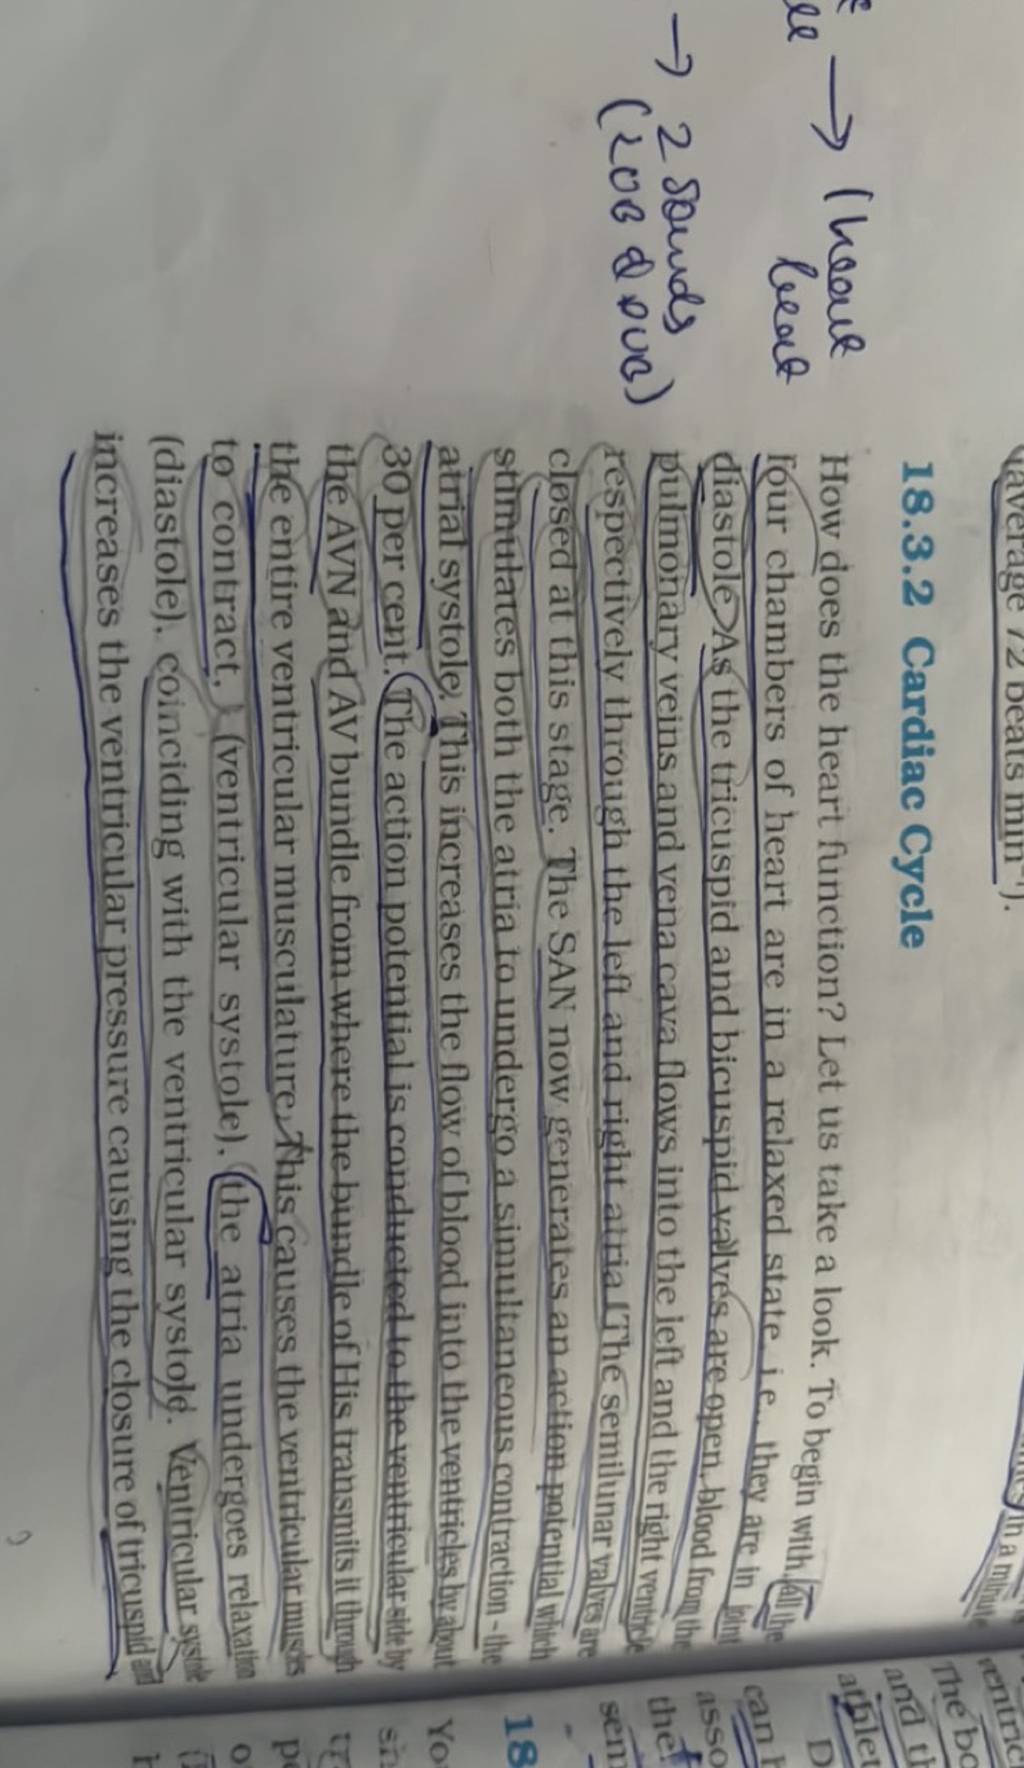 average 72 beats min⁻¹).
18.3.2 Cardiac Cycle
How does the heart function? Let us take a look. To begin with, all the
four chambers of heart are in a relaxed state, i.e., they are in joint
diastole. As the tricuspid and bicuspid valves are open, blood from the
pulmonary veins and vena cava flows into the left and the right ventricle
respectively through the left and right atria. The semilunar valves are
closed at this stage. The SAN now generates an action potential which
stimulates both the atria to undergo a simultaneous contraction - the
atrial systole. This increases the flow of blood into the ventricles by about
30 per cent. The action potential is conducted to the ventricular side by
the AVN and AV bundle from where the bundle of His transmits it through
the entire ventricular musculature. This causes the ventricular muscles
to contract, (ventricular systole), the atria undergoes relaxation
(diastole), coinciding with the ventricular systole. Ventricular systole
increases the ventricular pressure causing the closure of tricuspid and
→ (heart
beat
→ 2 sounds
(LUB & DUB)
in a minute
ventric
The bo
and th
athlet
D
can
asso
the
sem
18
Yo